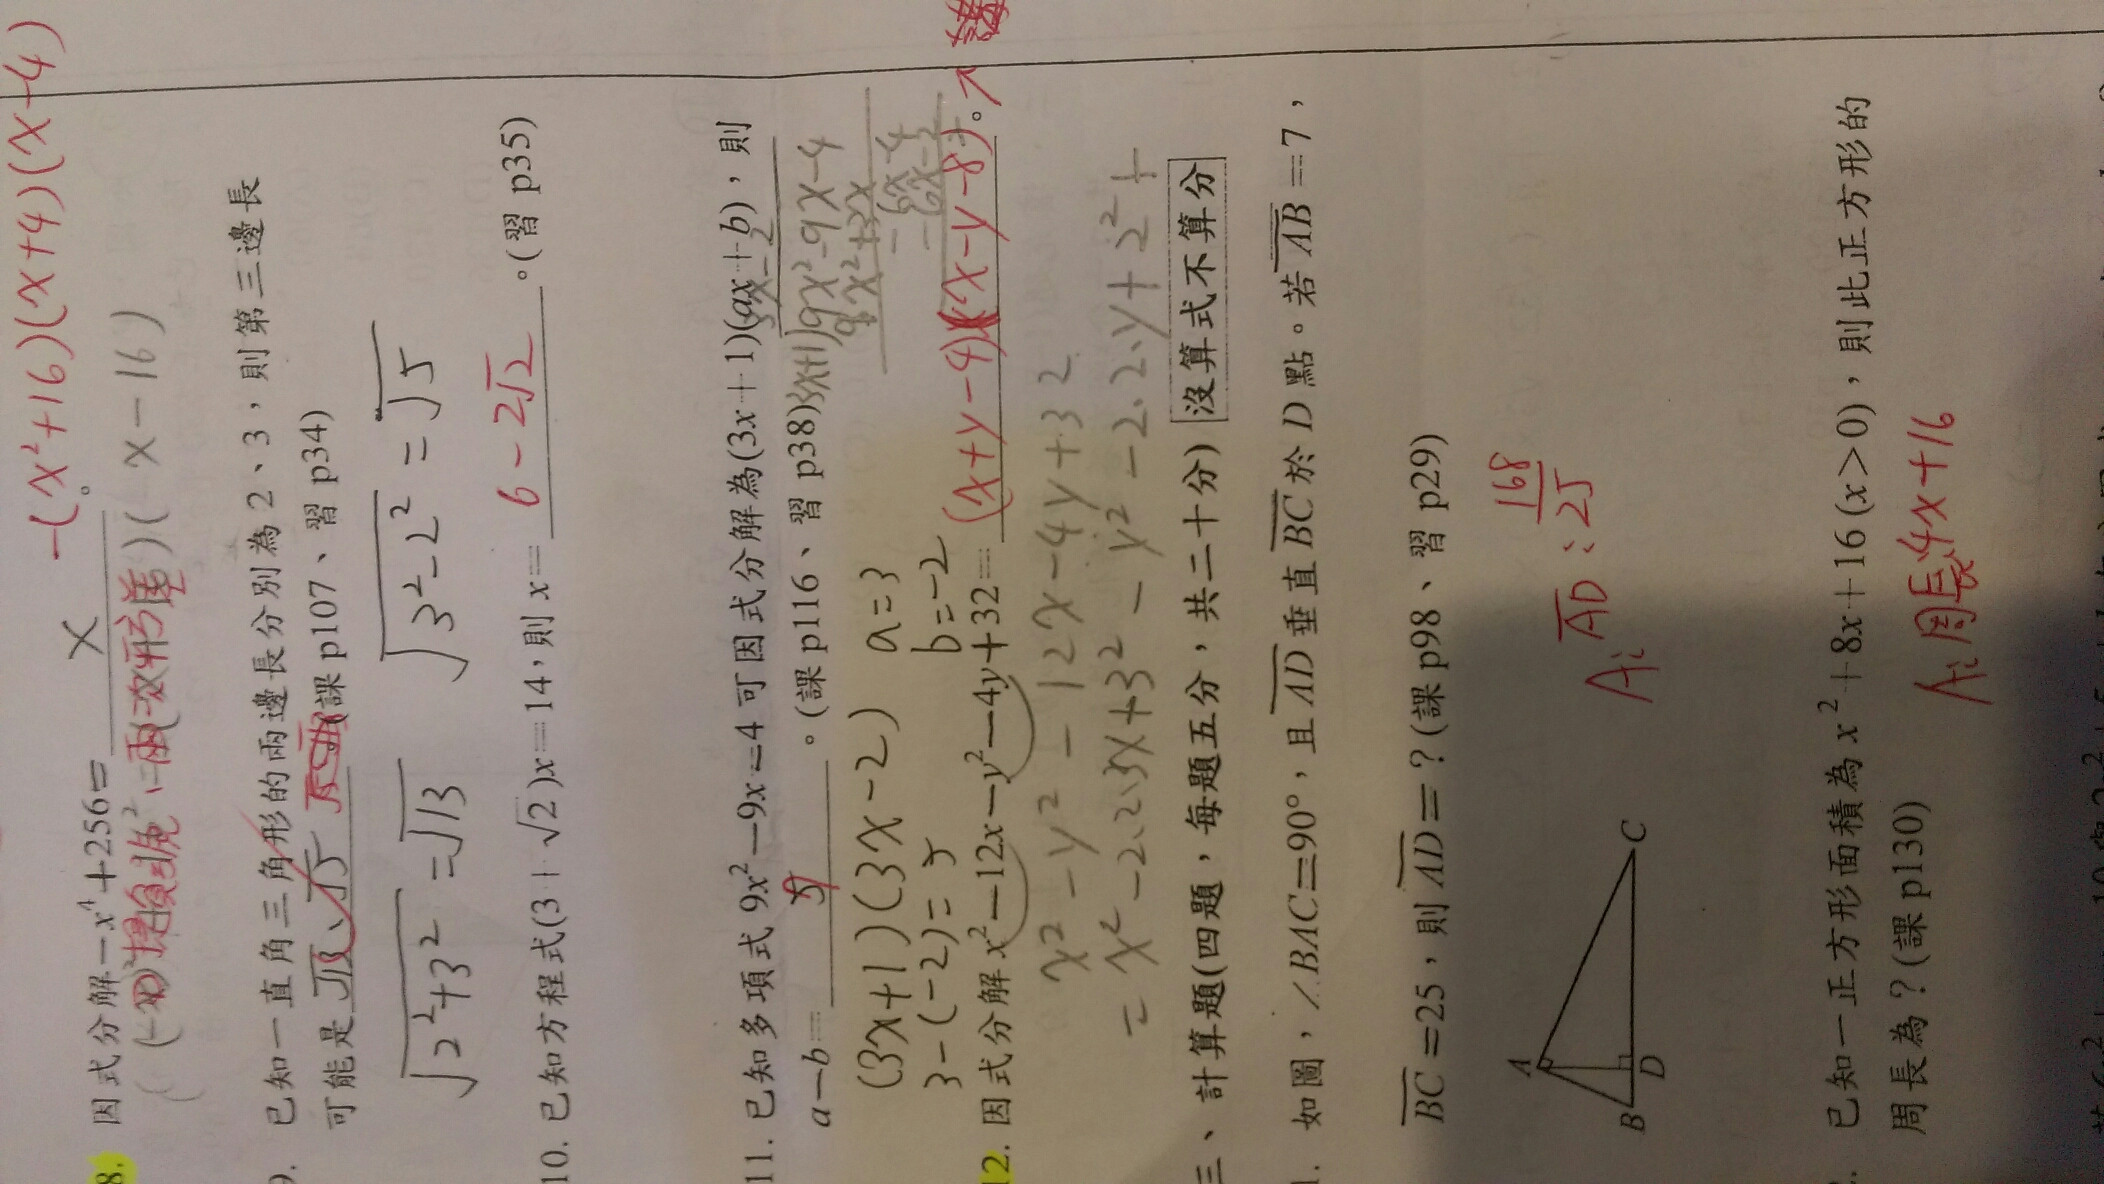 -(x²+16)(x+4)(x-4)
8. 因式分解-x⁴+256=x。
(-x²)提負號、再次平方差)( x-16)
9. 已知一直角三角形的兩邊長分別為2、3，則第三邊長
可能是√13、√5(課p107、習p34)
√2²+3²=√13 √3²-2²=√5
10. 已知方程式(3+√2)x=14，則x=6-2√2。(習p35)
11. 已知多項式9x²-9x-4可因式分解為(3x+1)(ax+b)，則
3x-2
a-b=5。(課p116、習p38)
3x+1)9x²-9x-4
9x²+3x
-6x-4
-6x-2
(3x+1)(3x-2) a=3
3-(-2)=5 b=-2
12. 因式分解x²-12x-y²-4y+32=(x+y-4)(x-y-8)。
x²-y²-12x-4y+32
=x²-2.2.3x+3²-y²-2.2.y+2²+
三、計算題(四題，每題五分，共二十分)沒算式不算分
1. 如圖，∠BAC=90°，且AD垂直BC於D點。若AB=7，
BC=25，則AD=？(課p98、習p29)
A: AD: 168/25
A
B D C
2. 已知一正方形面積為x²+8x+16(x>0)，則此正方形的
周長為？(課p130)
A: 周長4x+16